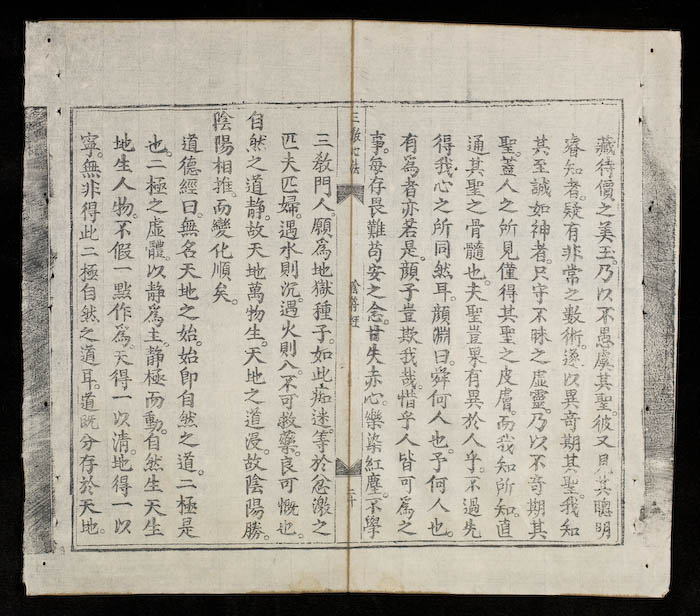 藏待價之美玉。乃以不愚虞其聖。彼又見其聰明
睿知者。疑有非常之數術。遂以異奇期其聖。我知
其至誠如神者。只守不昧之虛靈。乃以不奇期其
聖。蓋人之所見僅得其聖之皮膚。而我知所知。直
通其聖之骨髓也。夫聖豈果有異於人乎。不過先
得我心之所同然耳。顏淵曰。舜何人也。予何人也。
有為者亦若是。顏子豈欺我哉。惜乎人皆可為之
事。每存畏難苟安之念。甘失赤心。樂染紅塵。不學
三教心法
陰符經
三教門人。願為地獄種子。如此痴迷。等於忿激之
匹夫匹婦。遇水則沉。遇火則入。不可救藥。良可慨也。
自然之道靜。故天地萬物生。天地之道浸。故陰陽勝。
陰陽相推。而變化順矣。
道德經曰。無名天地之始。始即自然之道。二極是
也。二極之虛體。以靜為主。靜極而動。自然生天生
地生人物。不假一點作為。天得一以清。地得一以
寧。無非得此二極自然之道耳。道既分存於天地。